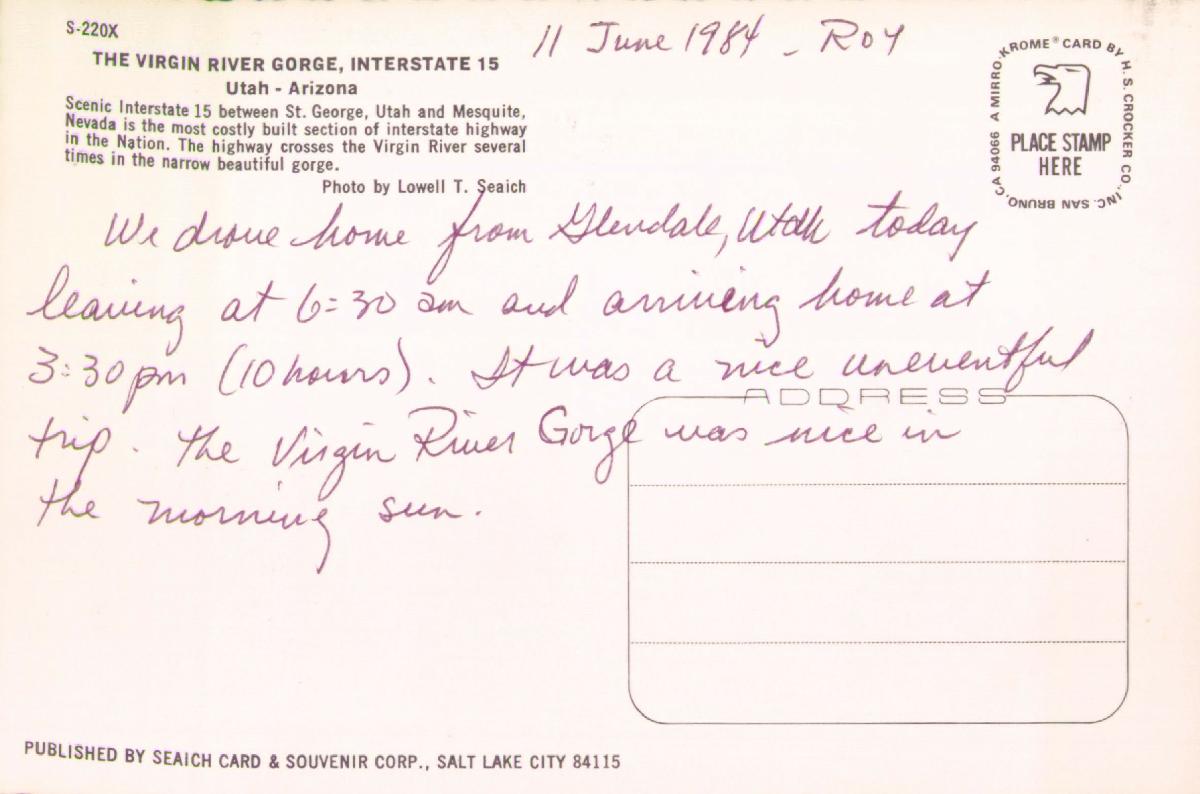 S-220X
11 June 1984 - ROY
THE VIRGIN RIVER GORGE, INTERSTATE 15
Utah - Arizona
Scenic Interstate 15 between St. George, Utah and Mesquite,
Nevada is the most costly built section of interstate highway
in the Nation. The highway crosses the Virgin River several
times in the narrow beautiful gorge.
Photo by Lowell T. Seaich
A MIRRO-KROME® CARD BY H. S. CROCKER CO., INC. SAN BRUNO, CA 94066
PLACE STAMP
HERE
We drove home from Glendale, Utah today
leaving at 6:30 am and arriving home at
3:30pm (10 hours). It was a nice uneventful
trip. The Virgin River Gorge was nice in
the morning sun.
ADDRESS
PUBLISHED BY SEAICH CARD & SOUVENIR CORP., SALT LAKE CITY 84115